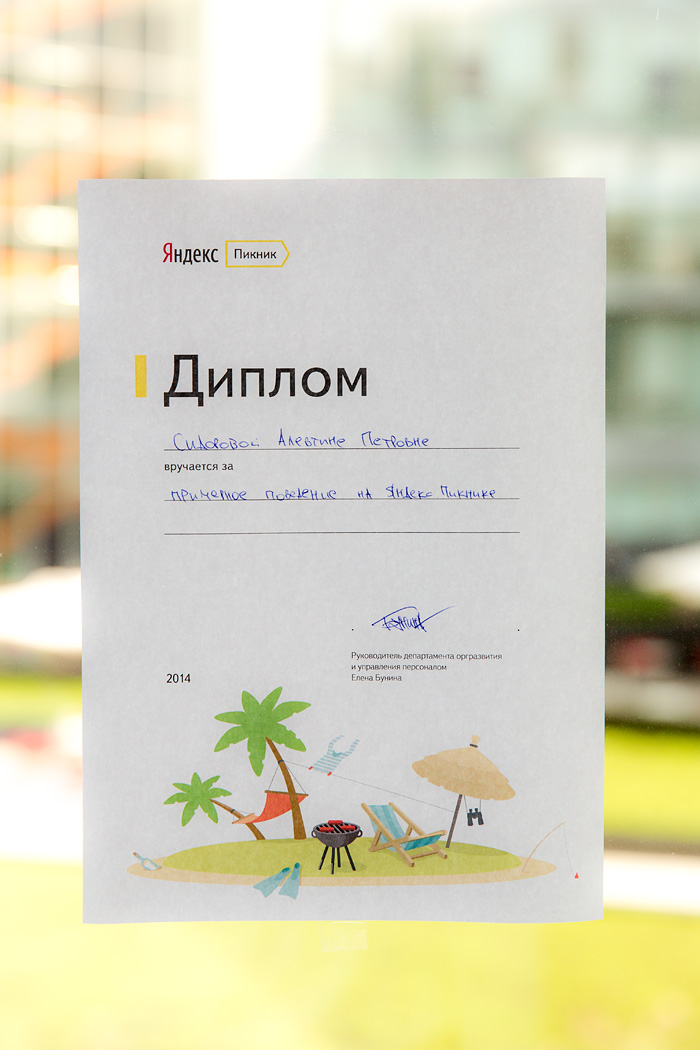 Яндекс Пикник
Диплом
Сидоровой Алевтине Петровне
вручается за
примерное поведение на Яндекс Пикнике
Руководитель департамента оргразвития
и управления персоналом
Елена Бунина
2014